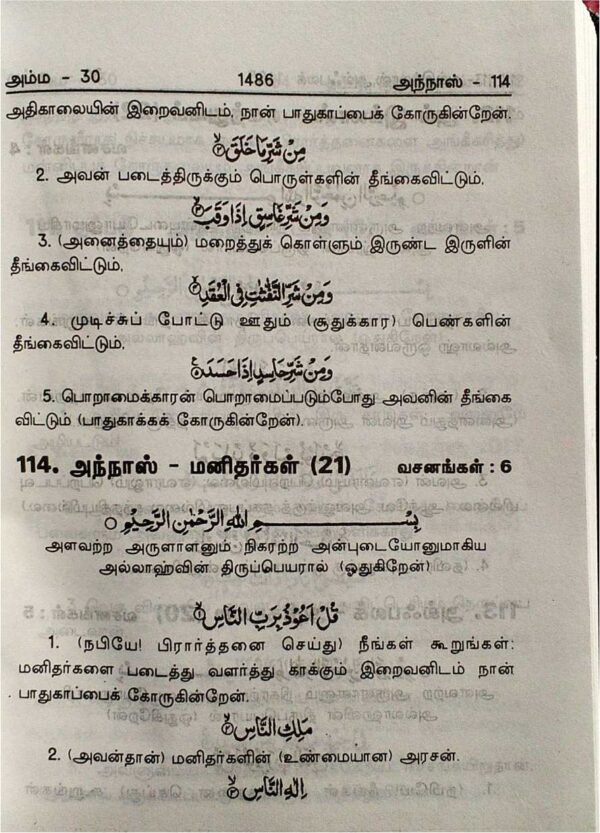 அம்ம - 30 1486 அந்நாஸ் - 114
அதிகாலையின் இறைவனிடம், நான் பாதுகாப்பைக் கோருகின்றேன்.
مِنْ شَرِّ مَا خَلَقَ ۙ۲
2. அவன் படைத்திருக்கும் பொருள்களின் தீங்கைவிட்டும்.
وَمِنْ شَرِّ غَاسِقٍ اِذَا وَقَبَ ۙ۳
3. (அனைத்தையும்) மறைத்துக் கொள்ளும் இருண்ட இருளின்
தீங்கைவிட்டும்.
وَمِنْ شَرِّ النَّفّٰثٰتِ فِى الْعُقَدِ ۙ۴
4. முடிச்சுப் போட்டு ஊதும் (சூதுக்கார) பெண்களின்
தீங்கைவிட்டும்.
وَمِنْ شَرِّ حَاسِدٍ اِذَا حَسَدَ ۵
5. பொறாமைக்காரன் பொறாமைப்படும்போது அவனின் தீங்கை
விட்டும் (பாதுகாக்கக் கோருகின்றேன்).
114. அந்நாஸ் - மனிதர்கள் (21) வசனங்கள் : 6
بِسْــــــمِ اللّٰهِ الرَّحْمٰنِ الرَّحِيْمِ ○
அளவற்ற அருளாளனும் நிகரற்ற அன்புடையோனுமாகிய
அல்லாஹ்வின் திருப்பெயரால் (ஓதுகிறேன்)
قُلْ اَعُوْذُ بِرَبِّ النَّاسِ ۙ۱
1. (நபியே! பிரார்த்தனை செய்து) நீங்கள் கூறுங்கள்:
மனிதர்களை படைத்து வளர்த்து காக்கும் இறைவனிடம் நான்
பாதுகாப்பைக் கோருகின்றேன்.
مَلِكِ النَّاسِ ۙ۲
2. (அவன்தான்) மனிதர்களின் (உண்மையான) அரசன்.
اِلٰهِ النَّاسِ ۙ۳